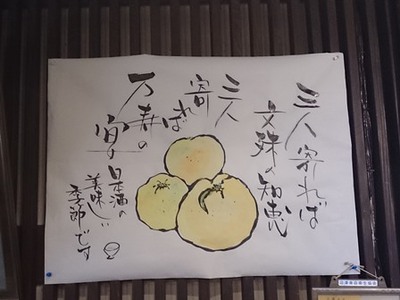 三人寄れば
文殊の知恵
三人
寄れば
万寿の
宴
日本酒の
美味しい
季節です